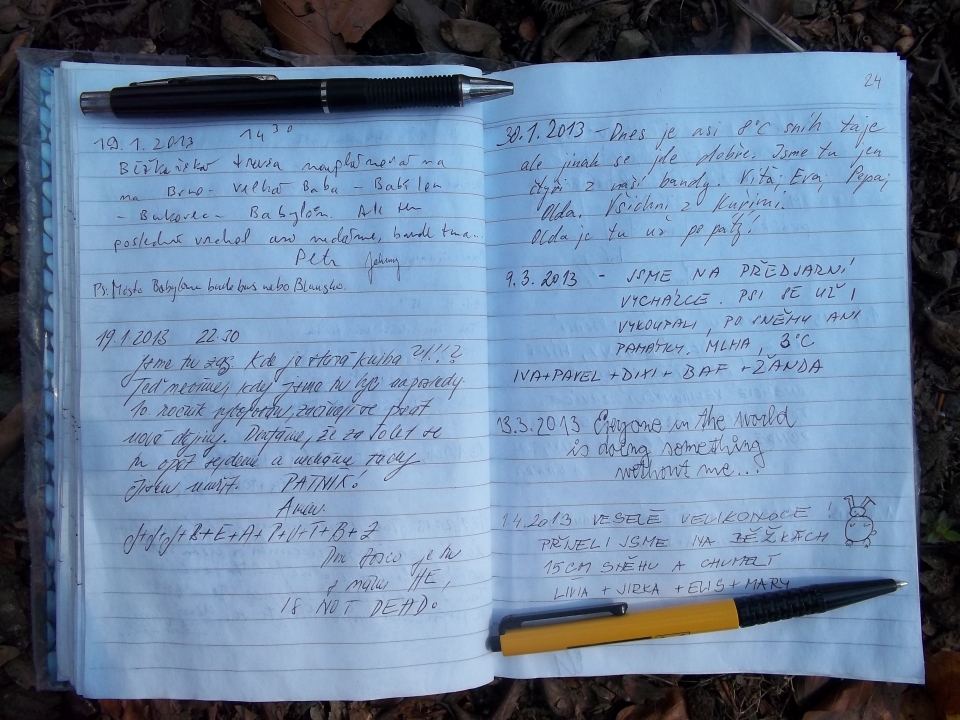 19.1.2013 14³⁰
Běžkařská trasa naplánovaná na
na Brno - Velká Baba - Babylon
- Bukovec - Babylón. Ale ten
poslední vrchol asi nedáme, bude tma.
Petr
Ps: Místo Babylonu bude bus nebo Blansko.
19.1.2013 22.30
Jsme tu zas. Kde je stará kniha ?!!?
Teď nevíme, kdy jsme tu byli naposledy.
10. ročník začínají se psát
nové dějiny. Doufáme, že za 10 let se
tu opět sejdeme a
PATNÍK.
Amen.
J+J+J+B+E+A+P+J+T+B+Z
Don Bosco je tu
s námi HE,
IS NOT DEAD.
24
30.1.2013 - Dnes je asi 8°C sníh taje
ale jinak se jde dobře. Jsme tu jen
čtyři z naší bandy. Víťa, Eva, Pepa,
Olda. Všichni z Kuřimi.
Olda je tu už po páté!
9.3.2013 - JSME NA PŘEDJARNÍ
VYCHÁZCE. PSI SE UŽ I
VYKOUPALI, PO SNĚHU ANI
PAMÁTKY. MLHA, 3°C
IVA+PAVEL+DIXI+BAF+ŽANDA
13.3.2013 Everyone in the world
is doing something
without me...
1.4.2013 VESELÉ VELIKONOCE!
PŘIJELI JSME NA BĚŽKÁCH
15CM SNĚHU A CHUMELÍ
LIVIA + JIRKA + ELIS + MARY